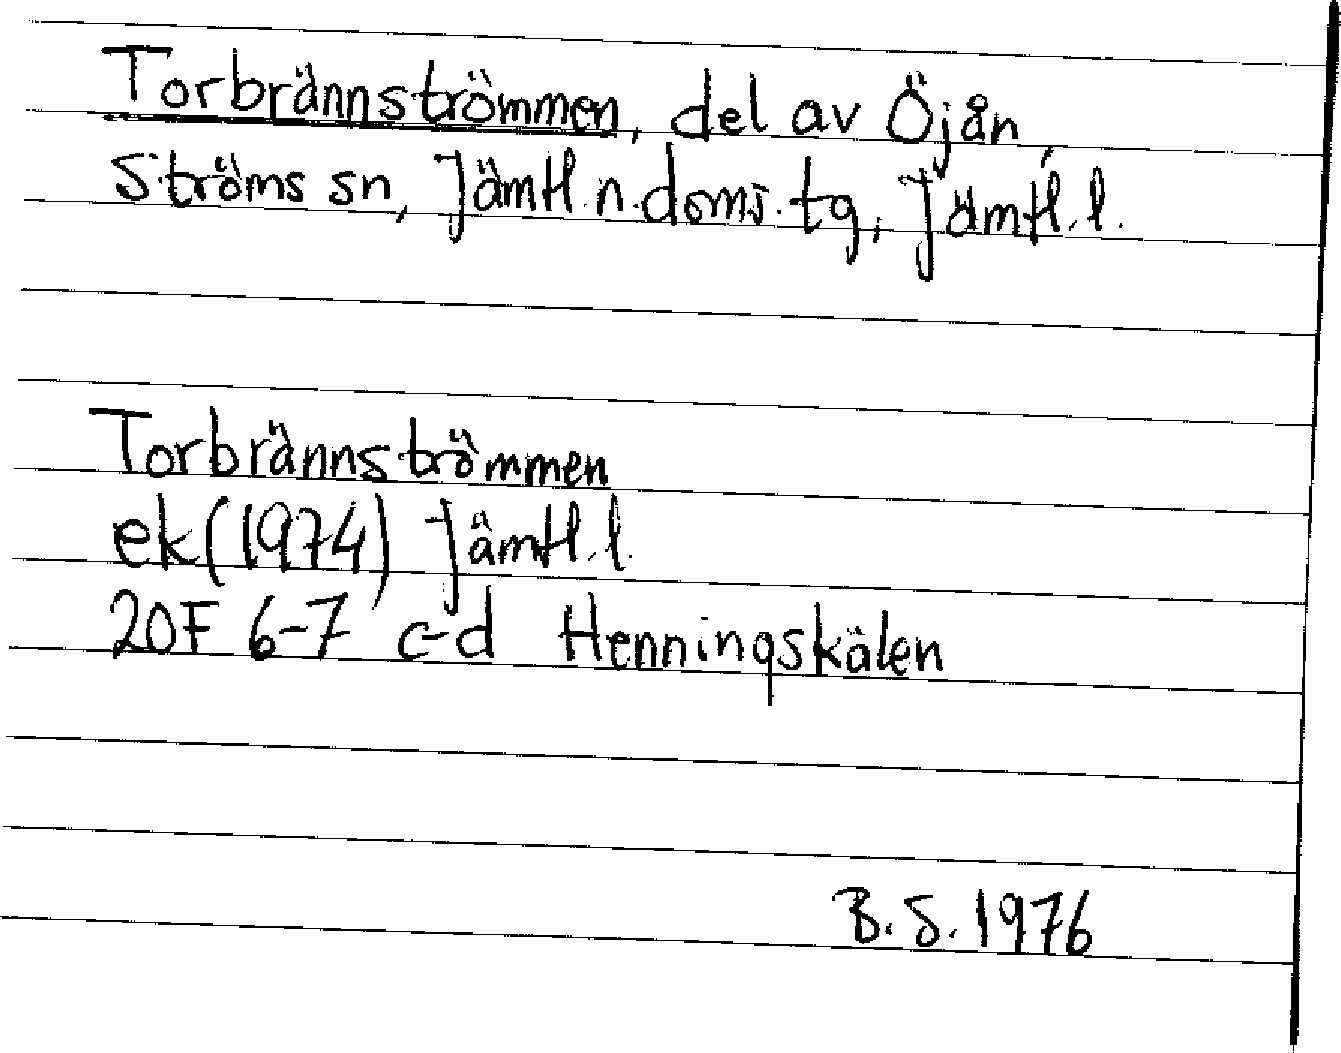 Torbrännströmmen, del av Öjån,
Ströms sn, Jämtl.n.doms.tg, Jämtl.l.
Torbrännströmmen
ek(1974) Jämtl.l.
20F 6-7 c-d Henningskälen
B.S. 1976